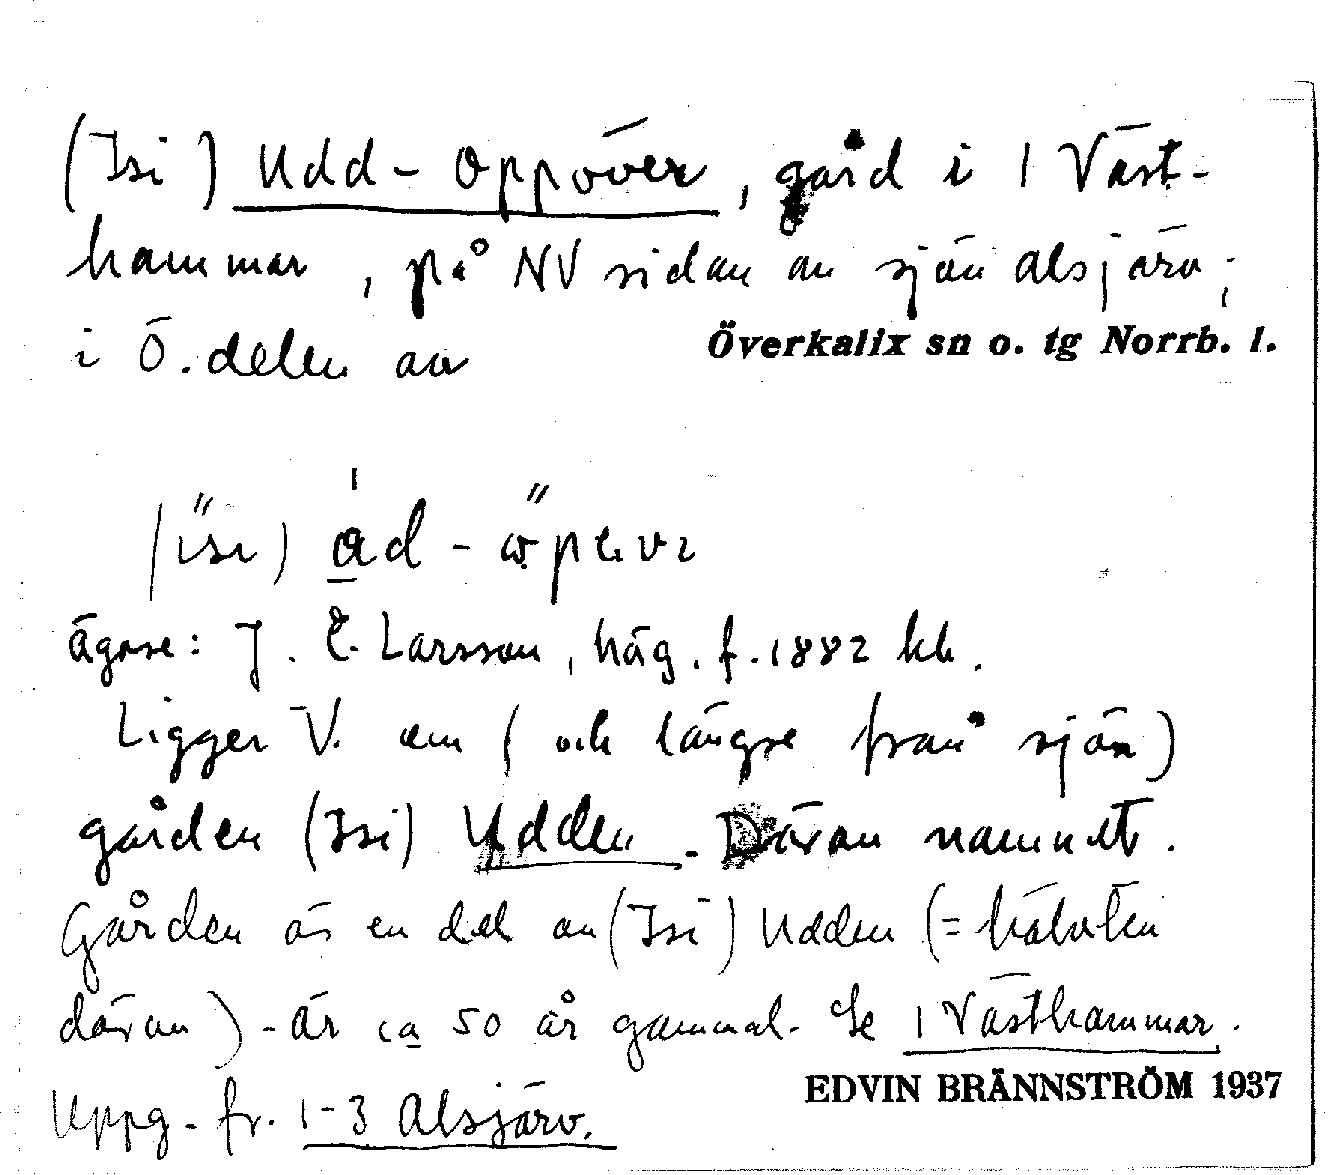 (Isi) Udd-Oppöver, gård i 1 Väst-
hammar, på NV sidan av sjön Alsjärv;
i Ö. delen av
Överkalix sn o. tg Norrb. l.
Ägare: J. E. Larsson, häg. f. 1882
Ligger V. om (och längre från sjön)
gården (Isi) Udden. Därav namnet.
Gården är en del av (Isi) Udden (= hälvten
därav) - är ca 50 år gammal. Se 1 Västhammar.
EDVIN BRÄNNSTRÖM 1937
Uppg. fr. 1-3 Alsjärv.